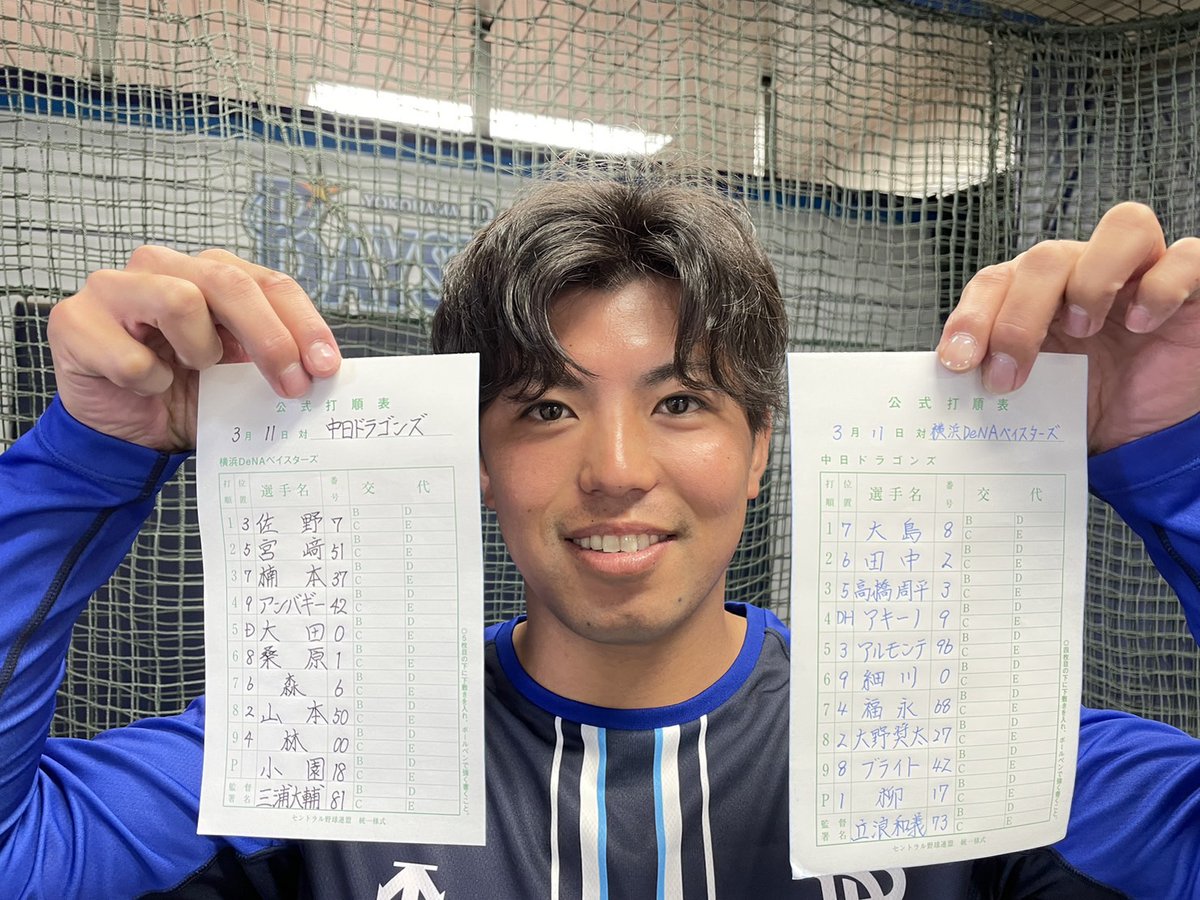 YOKOHAMA
BAYS
公式打順表
3月 11日 対 中日ドラゴンズ
横浜DeNAベイスターズ
打順 位置 選手名 番号 交代
1 3 佐野 7 B D C E
2 5 宮﨑 51 B D C E
3 7 楠本 37 B D C E
4 9 アンバギー 42 B D C E
5 D 大田 0 B D C E
6 8 桑原 1 B D C E
7 6 森 6 B D C E
8 2 山本 50 B D C E
9 4 林 00 B D C E
P 小園 18 B D C E
監督署名 三浦大輔 81 B D C E
セントラル野球連盟 統一様式
公式打順表
3月 11日 対 横浜DeNAベイスターズ
中日ドラゴンズ
打順 位置 選手名 番号 交代
1 7 大島 8 B D C E
2 6 田中 2 B D C E
3 5 高橋周平 3 B D C E
4 DH アキーノ 9 B D C E
5 3 アルモンテ 96 B D C E
6 9 細川 0 B D C E
7 4 福永 68 B D C E
8 2 大野奨太 27 B D C E
9 8 ブライト 42 B D C E
P 1 柳 17 B D C E
監督署名 立浪和義 73 B D C E
セントラル野球連盟 統一様式